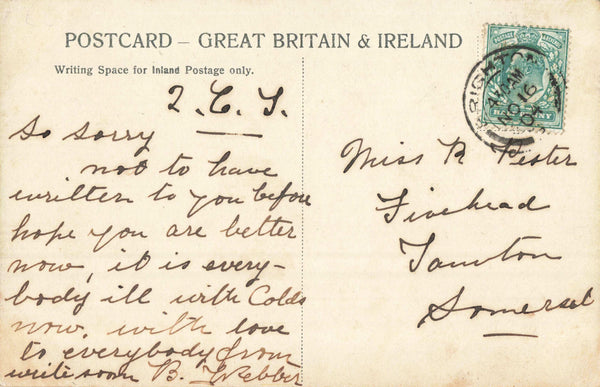 POSTCARD – GREAT BRITAIN & IRELAND
Writing Space for Inland Postage only.
So sorry
not to have
written to you before
hope you are better
now, it is every-
body ill with Colds
now, with love
to everybody from
write soon B.
Miss R
Fivehead
Taunton
Somerset
BRIGHTON
NO 16